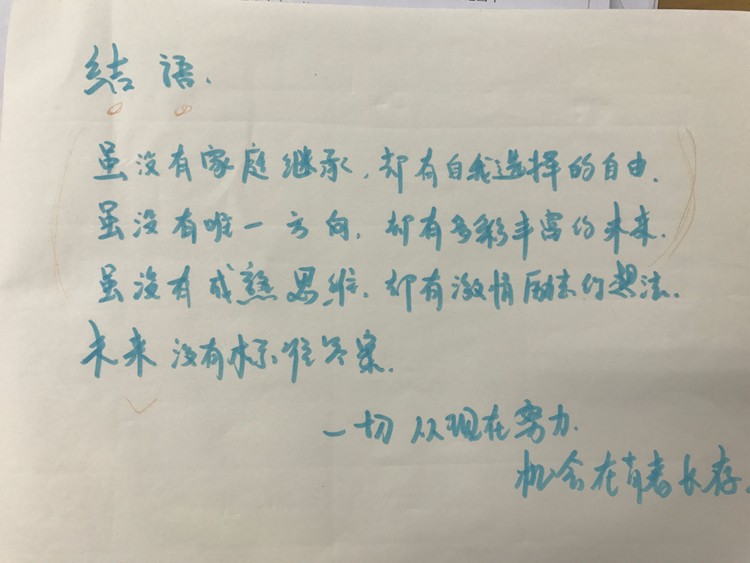 结语.
虽没有家庭继承,却有自我选择的自由.
虽没有唯一方向,却有多彩丰富的未来.
虽没有成熟思维,却有激情励志的想法.
未来没有标准答案.
一切从现在努力.
机会在青春长存.